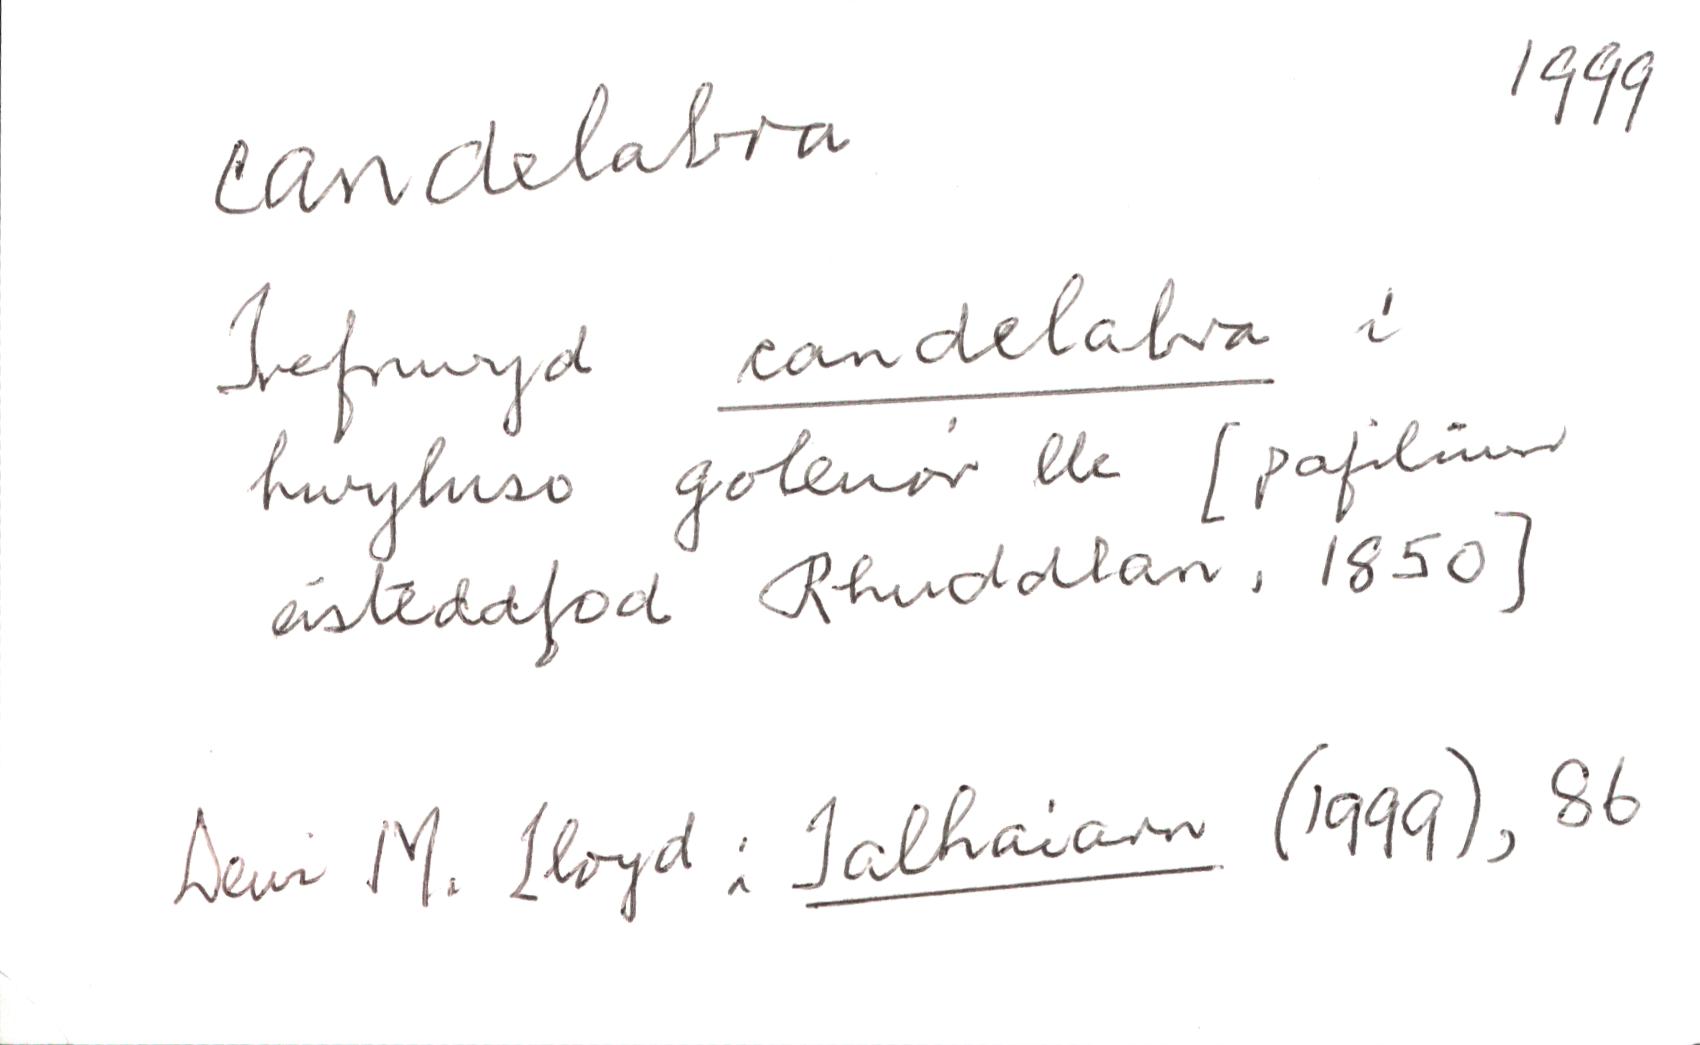 1999
candelabra
Trefnwyd candelabra i
hwyluso goleuo'r lle [pafiliwn
eisteddfod Rhuddlan, 1850]
Dewi M. Lloyd : Talhaiarn (1999), 86